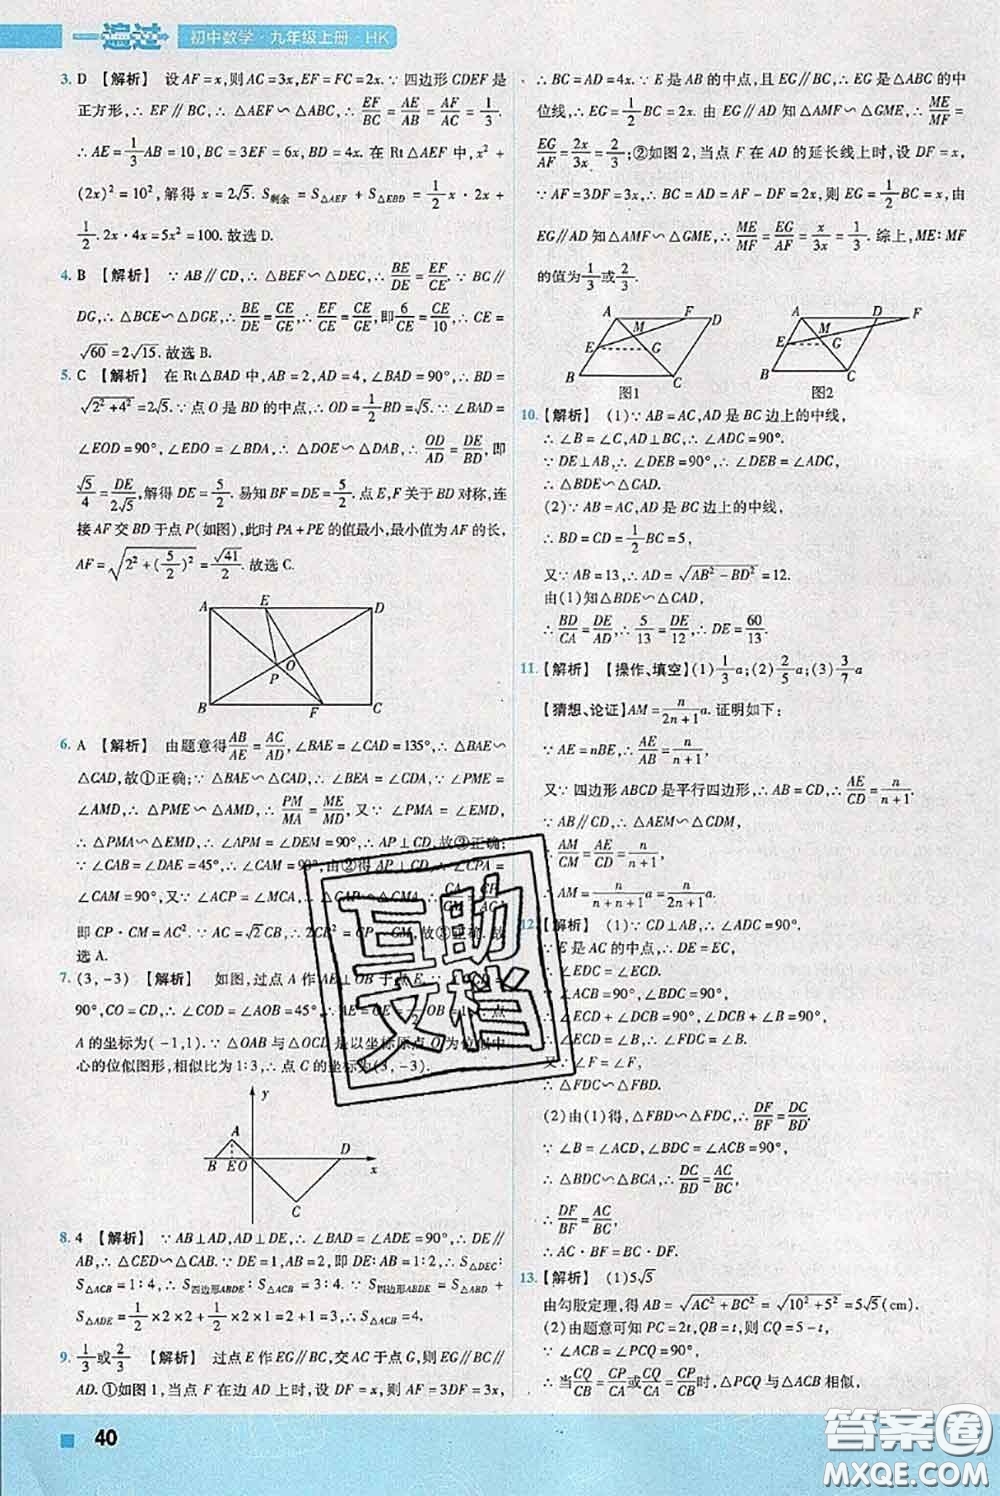 一遍过 初中数学·九年级上册·HK
3. D 【解析】 设 AF=x,则 AC=3x,EF=FC=2x.∵四边形 CDEF 是
正方形,∴EF∥BC,∴△AEF∽△ABC,∴EF/BC=AE/AB=AF/AC=1/3.
∴AE=1/3AB=10,BC=3EF=6x,BD=4x.在 Rt△AEF 中,x²+
(2x)²=10²,解得 x=2√5.S剩余=S△AEF+S△EBD=1/2x·2x+
1/2·2x·4x=5x²=100.故选 D.
4. B 【解析】 ∵AB∥CD,∴△BEF∽△DEC,∴BE/DE=EF/CE.∵BC∥
DG,∴△BCE∽△DGE,∴BE/DE=CE/GE,∴EF/CE=CE/GE,即6/CE=CE/10,∴CE=
√60=2√15.故选 B.
5. C 【解析】 在 Rt△BAD 中,AB=2,AD=4,∠BAD=90°,∴BD=
√(2²+4²)=2√5.∵点 O 是 BD 的中点,∴OD=1/2BD=√5.∵∠BAD
=∠EOD=90°,∠EDO=∠BDA,∴△DOE∽△DAB,∴OD/AD=DE/BD,即
√5/4=DE/2√5,解得 DE=5/2.易知 BF=DE=5/2.点 E,F 关于 BD 对称,连
接 AF 交 BD 于点 P(如图),此时 PA+PE 的值最小,最小值为 AF 的长,
AF=√(2²+(5/2)²)=√41/2.故选 C.
A E D
O
P
B F C
6. A 【解析】 由题意得AB/AE=AC/AD,∠BAE=∠CAD=135°,∴△BAE∽
△CAD,故①正确;∵△BAE∽△CAD,∴∠BEA=∠CDA=∠PME
=∠AMD,∴△PME∽△AMD,∴PM/MA=ME/MD,又∵∠PMA=∠EMD,
∴△PMA∽△EMD,∴∠APM=∠DEM=90°,∴AP⊥CD.故③正确;
∵∠CAB=∠DAE=45°,∴∠CAM=90°,由②得 AP⊥CD,∴∠CPA=
∠CAM,又∵∠ACP=∠MCA,∴△CAP∽△CMA,
即 CP·CM=AC².∵AC=√2CB,∴2CB²=CP·CM,故 正确.故
选 A.
7. (3,-3) 【解析】 如图,过点 A 作 AE⊥OB 于点 E,
90°,CO=CD,∴∠COD=∠AOB=45°,∴AE=OE=1/2OB=1 点
A 的坐标为(-1,1).∵△OAB 与△OCD 是以坐标原点 O 为位似中
心的位似图形,相似比为1:3,∴点 C 的坐标为(3,-3).
y
A
B E O D x
C
8. 4 【解析】 ∵AB⊥AD,AD⊥DE,∴∠BAD=∠ADE=90°,∴DE∥
AB,∴△CED∽△CAB,∵DE=1,AB=2,即 DE:AB=1:2,∴S△DEC:
S△ACB=1:4,∴S四边形ABDE:S△ACB=3:4.∵S四边形ABDE=S△ABD+
S△ADE=1/2×2×2+1/2×2×1=2+1=3,∴S△ACB=4.
9. 1/3或2/3 【解析】 过点 E 作 EG∥BC,交 AC 于点 G,则 EG∥BC∥
AD.①如图 1,当点 F 在边 AD 上时,设 DF=x,∵AF=2DF=2x,
∴BC=AD=4x.∵E 是 AB 的中点,且 EG∥BC,∴EG 是△ABC 的中
位线,∴EG=1/2BC=2x.由 EG∥AD 知△AMF∽△GME,∴ME/MF=
EG/AF=2x/3x=2/3;②如图 2,当点 F 在 AD 的延长线上时,设 DF=x,
∵AF=3DF=3x,∴BC=AD=AF-DF=2x,则 EG=1/2BC=x,由
EG∥AD 知△AMF∽△GME,∴ME/MF=EG/AF=x/3x=1/3.综上,ME:MF
的值为1/3或2/3.
A F D
M
E G
B C
图1
A D F
M
E G
B C
图2
10. 【解析】 (1)∵AB=AC,AD 是 BC 边上的中线,
∴∠B=∠C,AD⊥BC,∴∠ADC=90°.
∵DE⊥AB,∴∠DEB=90°,∴∠DEB=∠ADC,
∴△BDE∽△CAD.
(2)∵AB=AC,AD 是 BC 边上的中线,
∴BD=CD=1/2BC=5,
又∵AB=13,∴AD=√(AB²-BD²)=12.
由(1)知△BDE∽△CAD,
∴BD/CA=DE/AD,∴5/13=DE/12,∴DE=60/13.
11. 【解析】 【操作、填空】(1)1/3a;(2)2/5a;(3)3/7a
【猜想、论证】AM=n/(2n+1)a.证明如下:
∵AE=nBE,∴AE/AB=n/(n+1).
又∵四边形 ABCD 是平行四边形,∴AB=CD,∴AE/CD=n/(n+1).
∵AB∥CD,∴△AEM∽△CDM,
∴AM/CM=AE/CD=n/(n+1),
∴AM=n/(n+n+1)a=n/(2n+1)a.
12. 【解析】 (1)∵CD⊥AB,∴∠ADC=90°.
∵E 是 AC 的中点,∴DE=EC,
∴∠EDC=∠ECD.
∵∠ACB=90°,∠BDC=90°,
∴∠ECD+∠DCB=90°,∠DCB+∠B=90°,
∴∠ECD=∠B,∴∠FDC=∠B.
又∵∠F=∠F,
∴△FDC∽△FBD.
(2)由(1)得,△FBD∽△FDC,∴DF/BF=DC/BD.
∵∠B=∠ACD,∠BDC=∠ACB=90°,
∴△BDC∽△BCA,∴DC/BD=AC/BC,
∴DF/BF=AC/BC,
∴AC·BF=BC·DF.
13. 【解析】 (1)5√5
由勾股定理,得 AB=√(AC²+BC²)=√(10²+5²)=5√5(cm).
(2)由题意可知 PC=2t,QB=t,则 CQ=5-t,
∵∠PCQ=∠ACB=90°,
∴当CQ/CB=CP/CA或CQ/CA=CP/CB时,△PCQ 与△ACB 相似,
40
互助
文档
答案圈
MXQE.COM